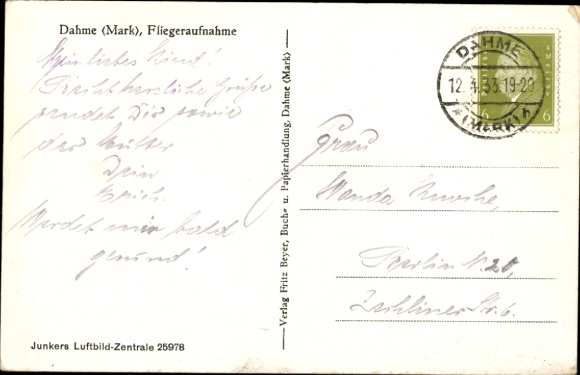 Dahme (Mark), Fliegeraufnahme
Mein liebes Kind!
Recht herzliche Grüße
sendet Dir sowie
der Mutter
Dein
Erich.
Werdet mir bald
gesund!
Junkers Luftbild-Zentrale 25978
Verlag Fritz Beyer, Buch- u. Papierhandlung, Dahme (Mark)
DAHME
12.4.33.19-20
(MARK)
6
6
Frau
Wanda
Berlin N. 20,
Str. 6.